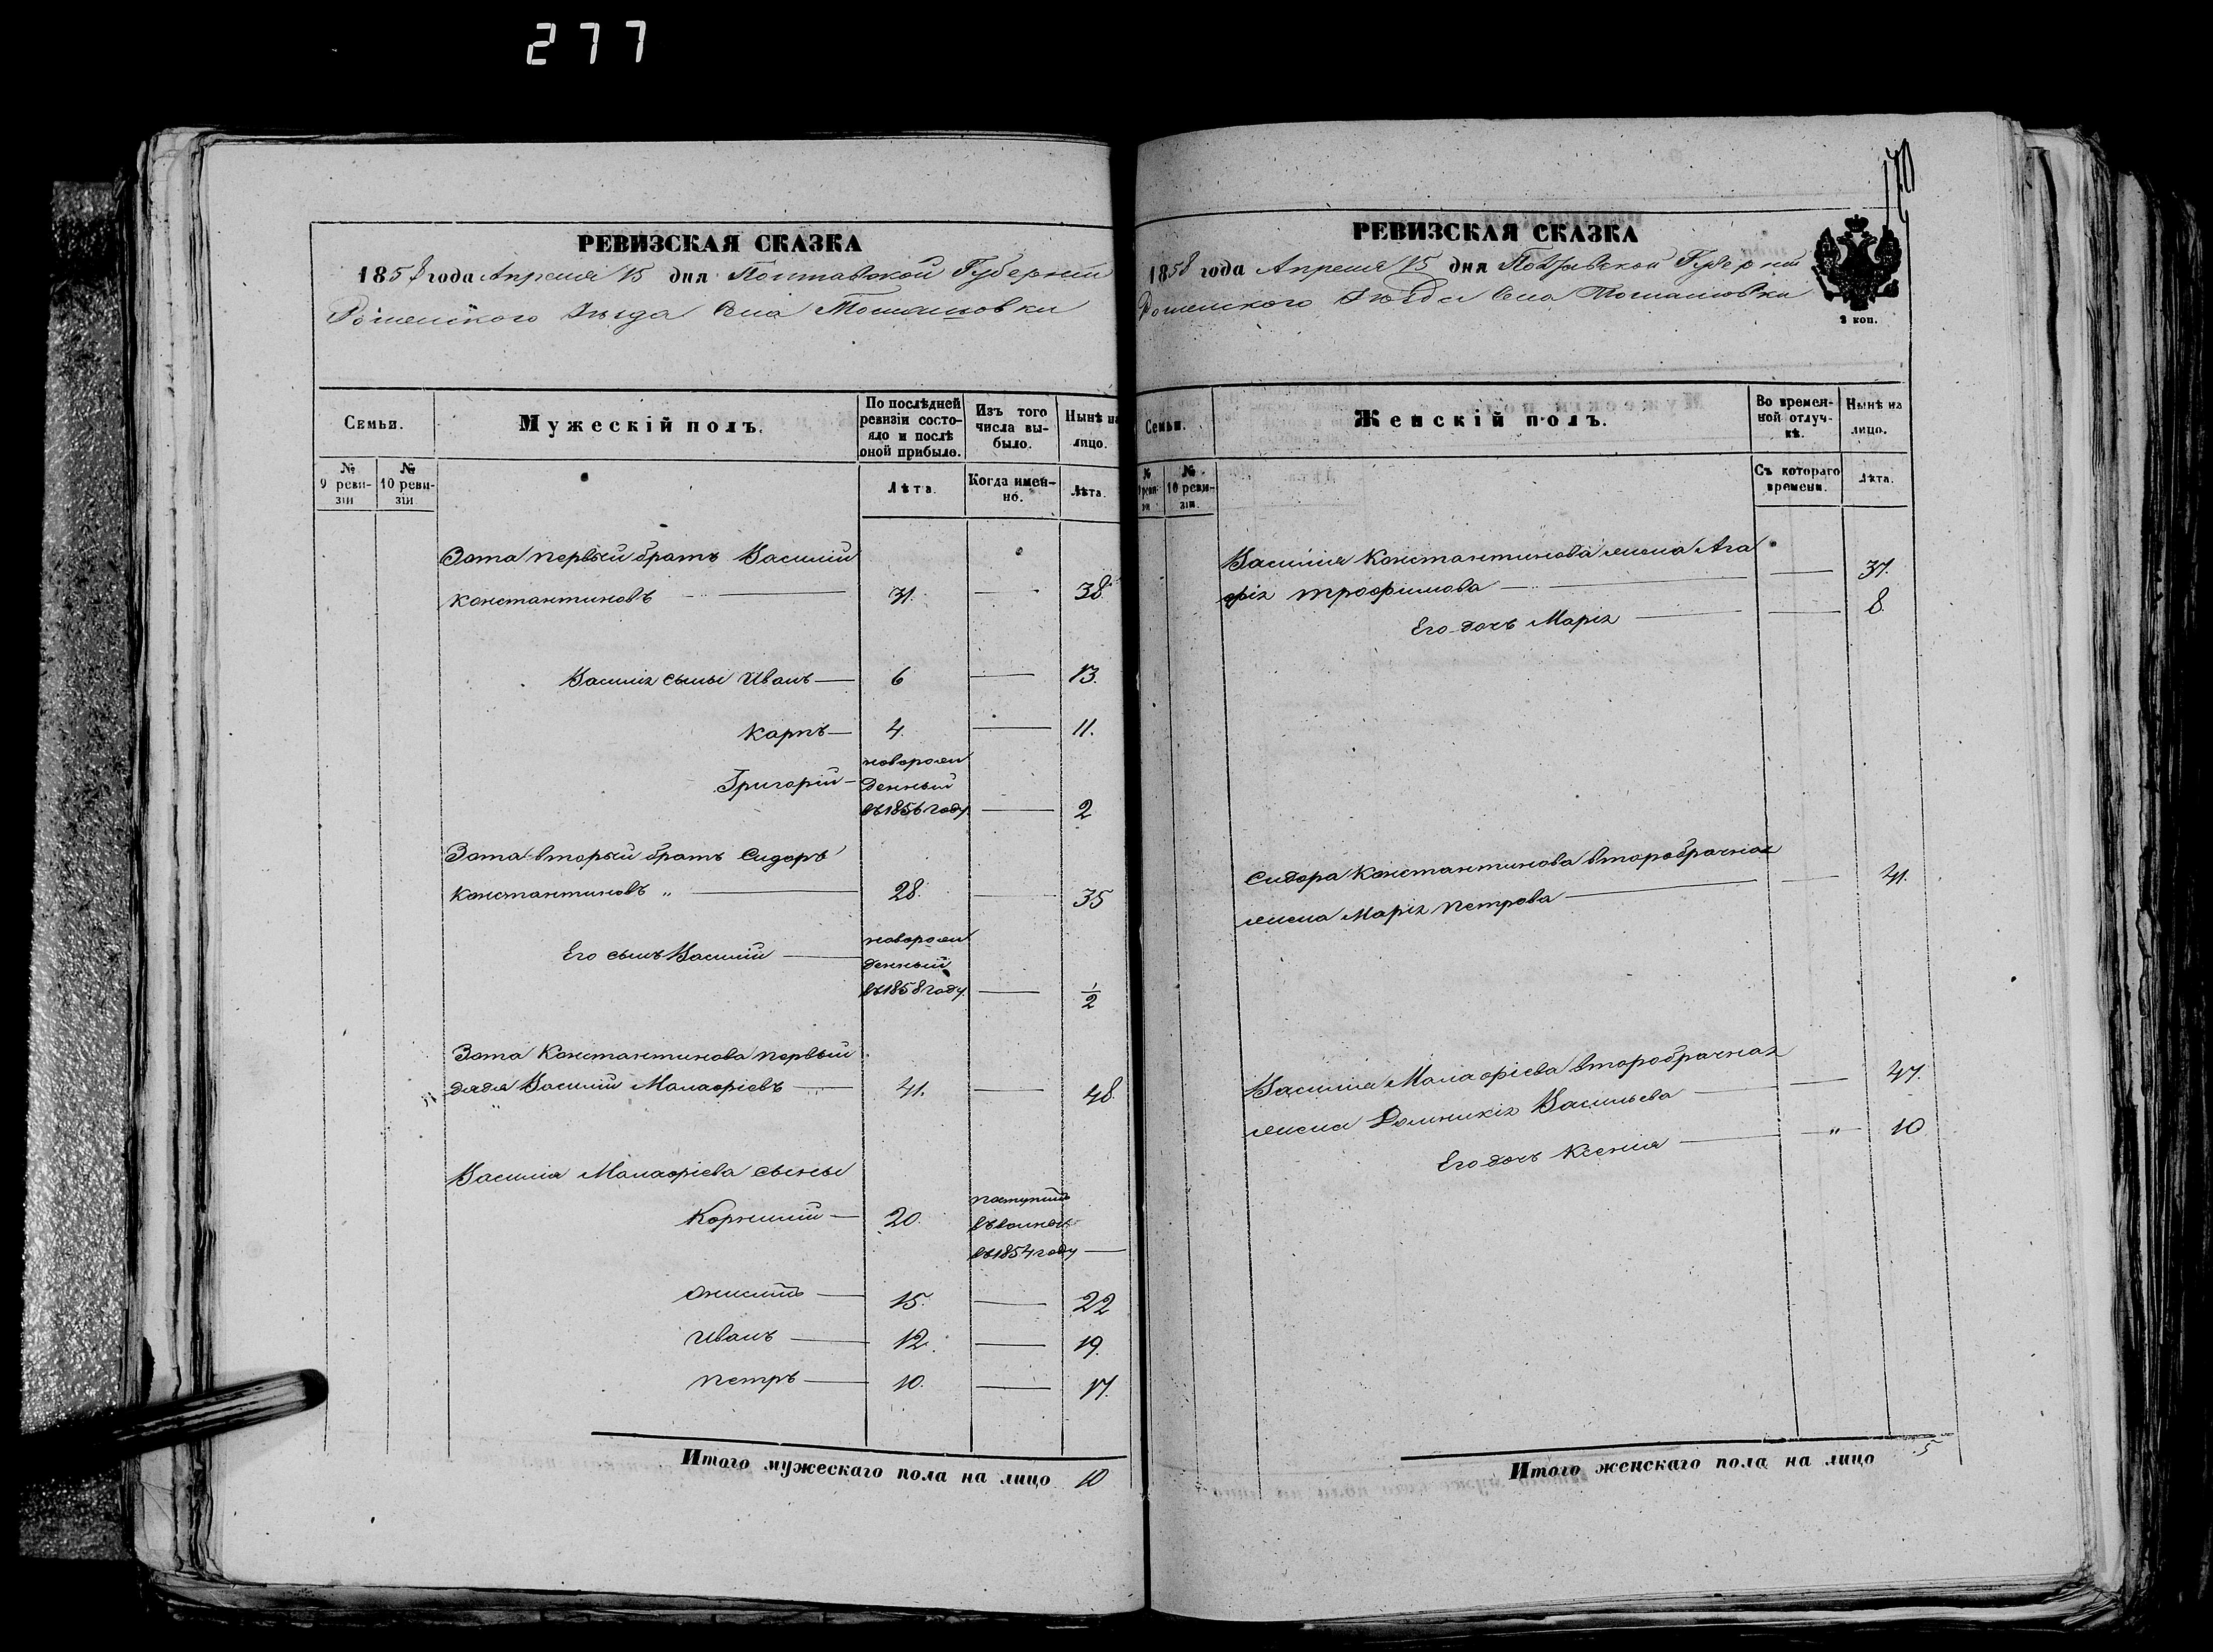 277
170
РЕВИЗСКАЯ СКАЗКА
1858 года Апреля 15 дня Полтавской Губернии
Роменского Уезда Села Томашовки
Семьи.
Мужескій полъ.
По послѣдней ревизіи состояло и послѣ оной прибыло.
Изъ того числа выбыло.
Нынѣ на лицо.
№ 9 ревизіи
№ 10 ревизіи
Лѣта.
Когда именно.
Лѣта.
Зота первый братъ Василій
Константиновъ 31. 38.
Василія сыны Иванъ 6 13.
Карпъ 4. 11.
Григорій новорожденный въ 1856 году 2
Зота вторый братъ Сидоръ
Константиновъ 28. 35
Его сынъ Василій новорожденный въ 1858 году. 1/2
Зота Константинова первый
дядя Василий Малафіевъ 41. 48.
Василія Малафіева сыны
Корнилий 20. поступилъ въ 1854 году
Онисимъ 15. 22
Иванъ 12. 19.
Петръ 10. 17.
Итого мужескаго пола на лицо 10
РЕВИЗСКАЯ СКАЗКА
1858 года Апреля 15 дня Полтавской Губернии
Роменского Уезда Села Томашовки
2 коп.
Семьи.
Женскій полъ.
Во временной отлучкѣ.
Нынѣ на лицо.
№ 9 ревизіи
№ 10 ревизіи
Съ котораго времени.
Лѣта.
Василія Константинова жена Ага
фія Трофимова 37.
Его дочь Марія 8.
Сидора Константинова второбрачная
жена Марія Петрова 41.
Василія Малафіева второбрачная
жена Домникія Васильева 47.
Его дочь Ксения " 10
Итого женскаго пола на лицо 5